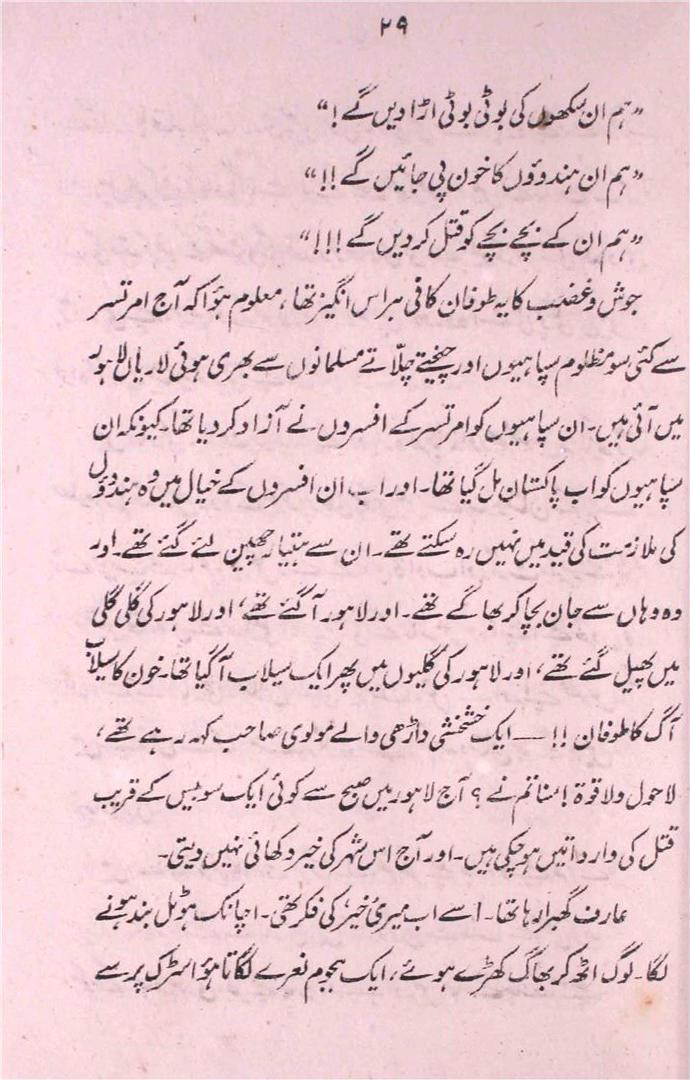 ۲۹
”ہم ان سکھوں کی بوٹی بوٹی اڑا دیں گے!“
”ہم ان ہندوؤں کا خون پی جائیں گے!!“
”ہم ان کے بچے بچے کو قتل کر دیں گے!!!“
جوش و غضب کا یہ طوفان کافی ہراس انگیز تھا، معلوم ہؤا کہ آج امرتسر
سے کئی سو مظلوم سپاہیوں اور چیختے چلّاتے مسلمانوں سے بھری ہوئی لاریاں لاہور
میں آئی ہیں۔ ان سپاہیوں کو امرتسر کے افسروں نے آزاد کر دیا تھا۔ کیونکہ ان
سپاہیوں کو اب پاکستان مل گیا تھا۔ اور اب ان افسروں کے خیال میں وہ ہندوؤں
کی ملازمت کی قید میں نہیں رہ سکتے تھے۔ ان سے ہتیار چھین لئے گئے تھے۔ اور
وہ وہاں سے جان بچا کر بھاگے تھے۔ اور لاہور آ گئے تھے، اور لاہور کی گلی گلی
میں پھیل گئے تھے، اور لاہور کی گلیوں میں پھر ایک سیلاب آ گیا تھا۔ خون کا سیلاب
آگ کا طوفان!! — ایک خشخشی داڑھی والے مولوی صاحب کہہ رہے تھے،
لاحول ولا قوۃ! سنا تم نے؟ آج لاہور میں صبح سے کوئی ایک سو بیس کے قریب
قتل کی وارداتیں ہو چکی ہیں۔ اور آج اس شہر کی خیر دکھائی نہیں دیتی۔
عارف گھبرا رہا تھا۔ اسے اب میری خیر کی فکر تھی۔ اچانک ہوٹل بند ہونے
لگا۔ لوگ اٹھ کر بھاگ کھڑے ہوئے، ایک ہجوم نعرے لگاتا ہؤا سڑک پر سے